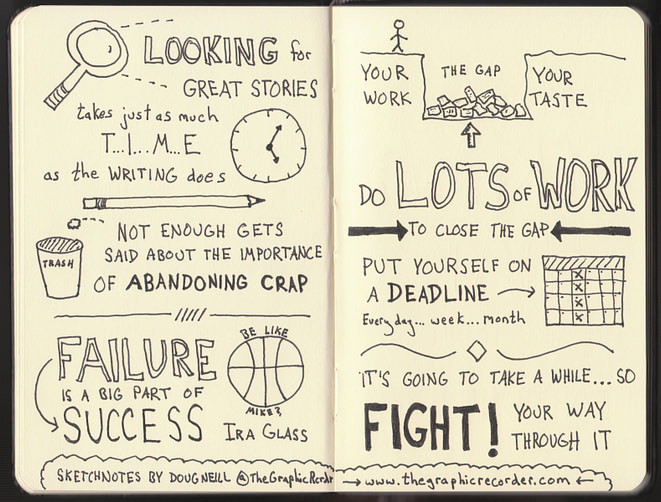 LOOKING for
GREAT STORIES
takes just as much
T...I...M...E
as the WRITING does
NOT ENOUGH GETS
SAID ABOUT THE IMPORTANCE
OF ABANDONING CRAP
TRASH
FAILURE
IS A BIG PART OF
SUCCESS
BE LIKE
MIKE?
IRA GLASS
SKETCHNOTES BY DOUG NEILL @TheGraphicRcrdr
YOUR
WORK
THE GAP
YOUR
TASTE
DO LOTS OF WORK
TO CLOSE THE GAP
PUT YOURSELF ON
A DEADLINE
Every day... week... month
IT'S GOING TO TAKE A WHILE... SO
FIGHT! YOUR WAY
THROUGH IT
www.thegraphicrecorder.com